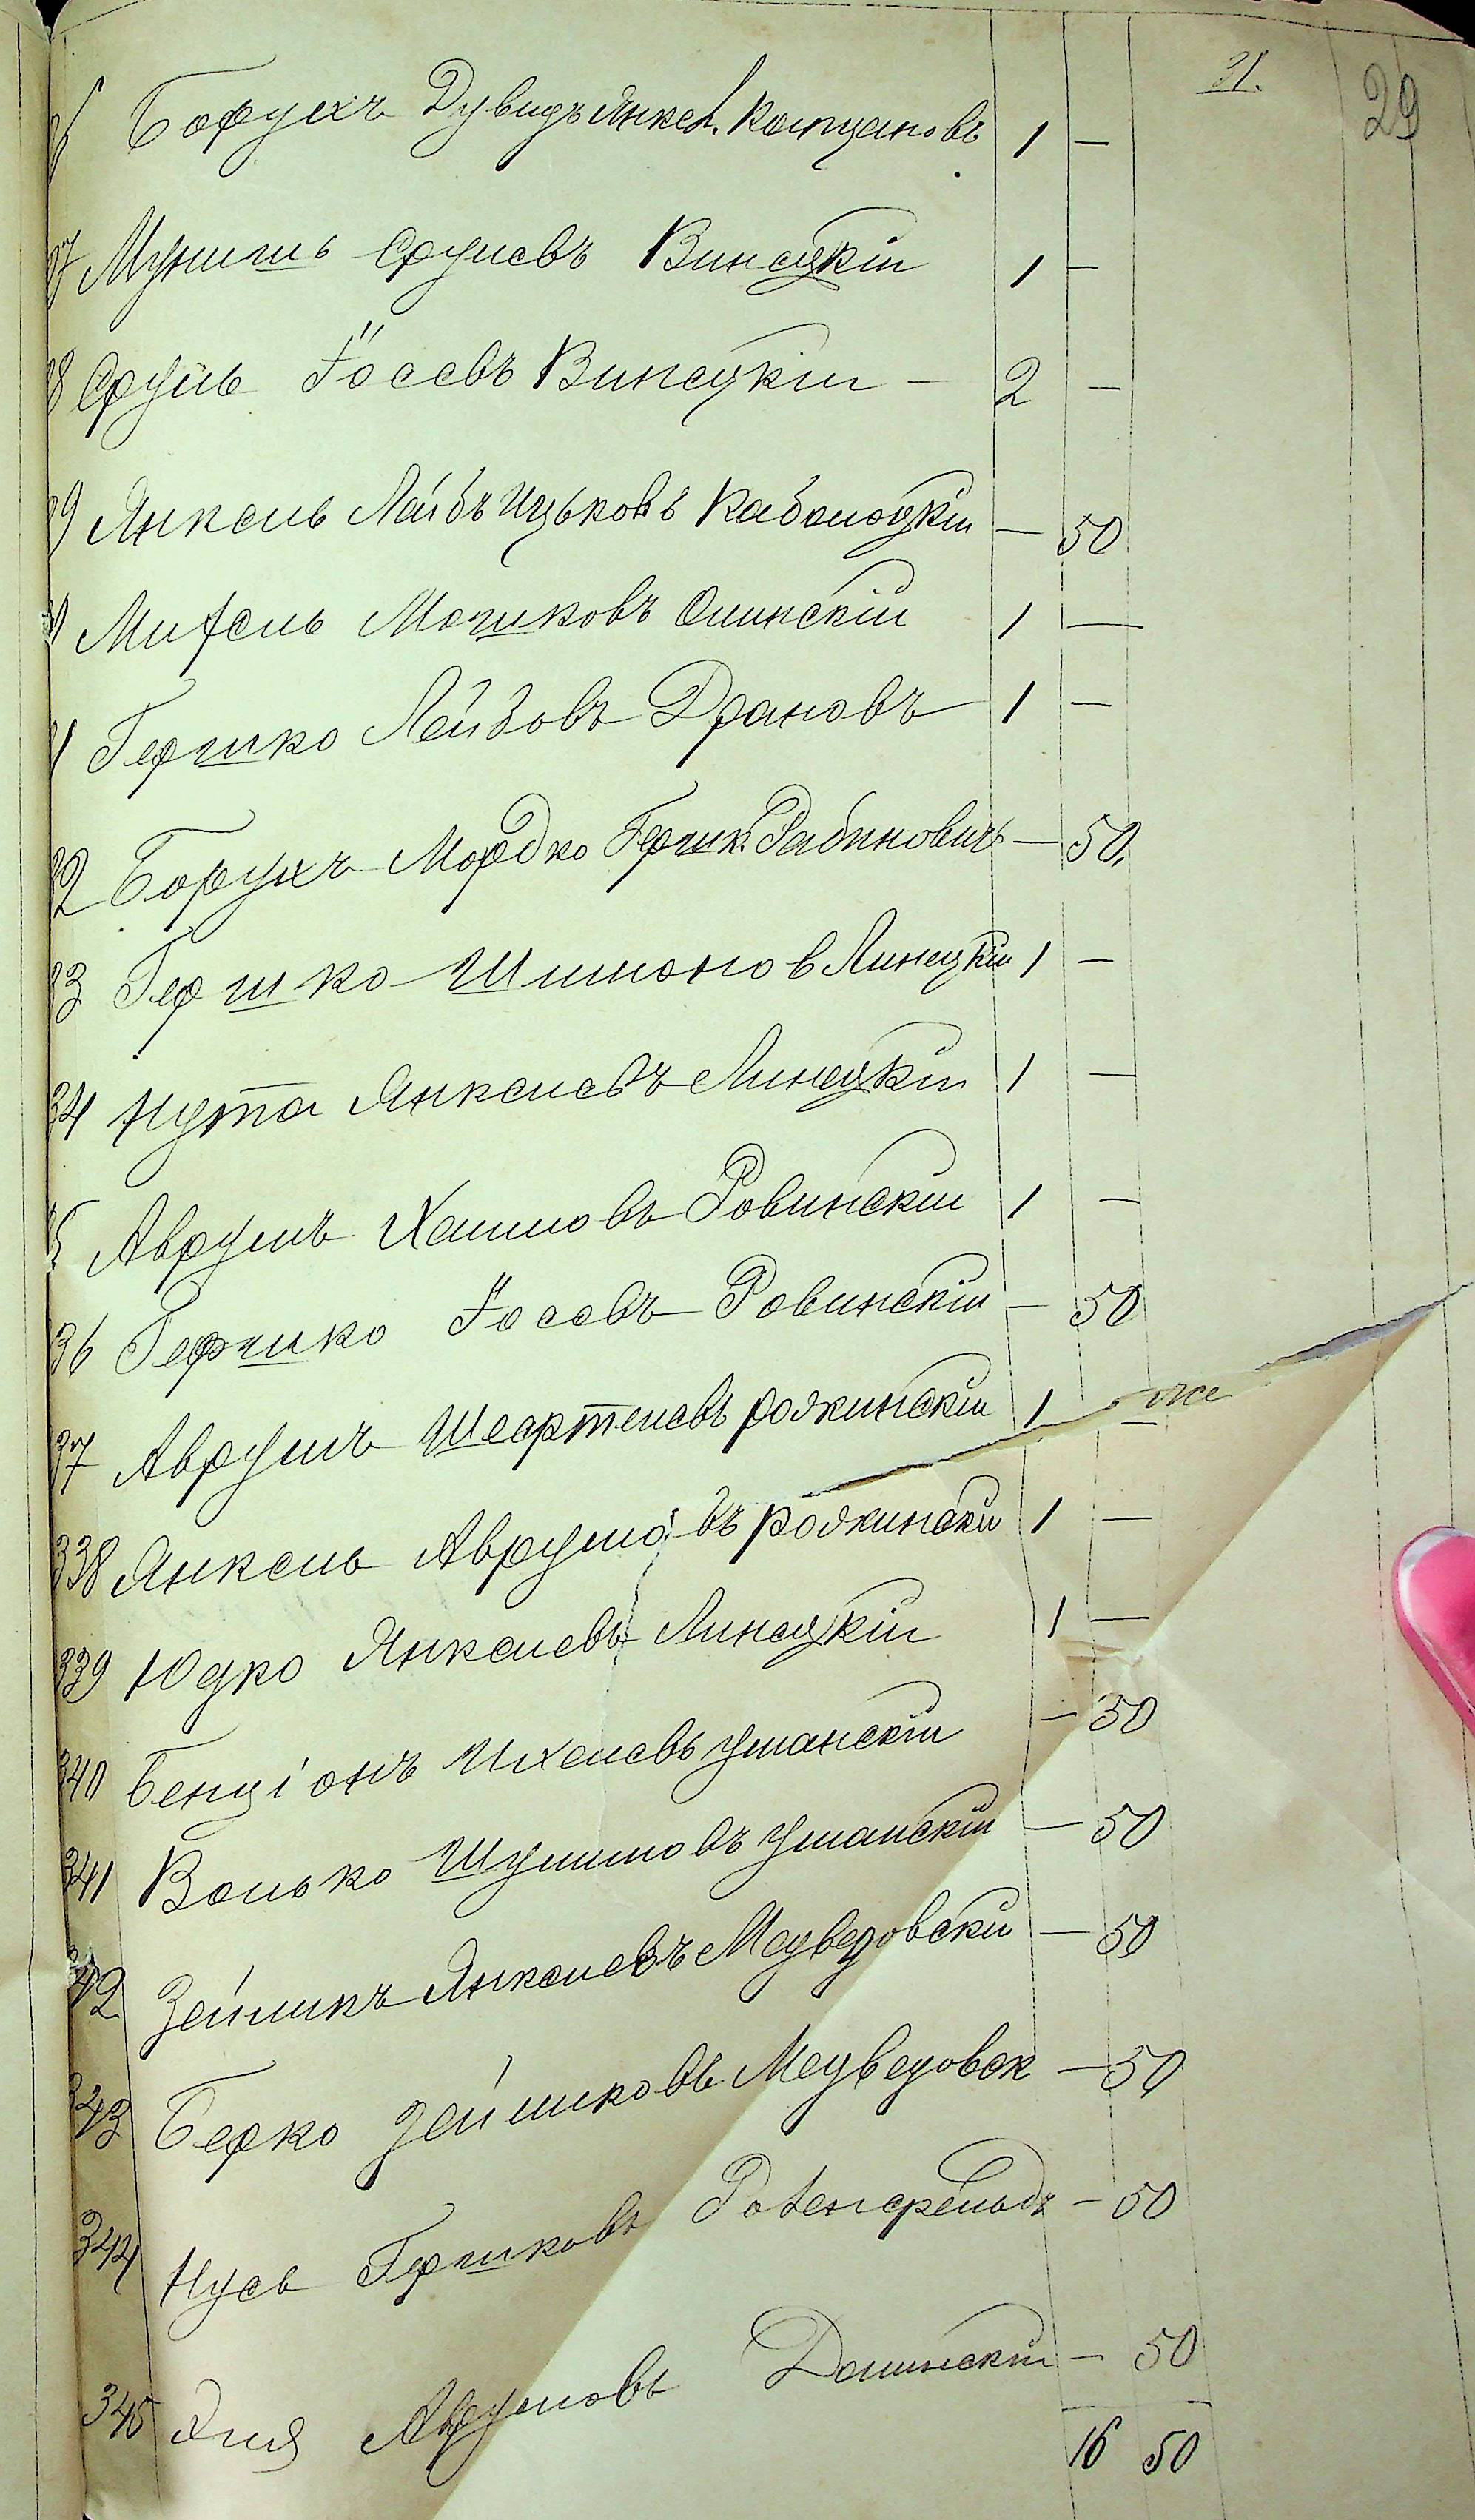 21.
29
6 Борухъ Дувидъ Янкел. Копцановъ 1 —
27 Мунишъ Срулевъ Винецкій 1 —
28 Сруль Іосевъ Винецкій — 2 —
29 Янкель Лейбъ Ицьковъ Каболоцкій — 50
Мифель Мошковъ Олинскій 1 —
1 Гершко Лейзовъ Драновъ 1 —
32 Борухъ Мордко Гершк. Рабиновичъ — 50
33 Гершко Шимонов Линецкій 1 —
34 Нута Янкелевъ Линецкій 1 —
5 Аврумъ Хаимовъ Ровинскій 1 —
36 Гершко Іосевъ Ровинскій — 50
37 Аврумъ рожинскій 1 —
же
338 Янкель Аврумовъ рожински 1 —
339 Юдко Янкелевъ Линецкій 1 —
340 Бенціонъ Ихелевъ уманскій — 50
341 Волько Шулимовъ уманскій — 50
342 Зейликъ Янкелевъ Медведовскій — 50
343 Берко Зейликовъ Медведовск — 50
344 Нусь Гершковъ Розенфельдъ — 50
345 Эля Аврумовъ Долинскій — 50
16 50